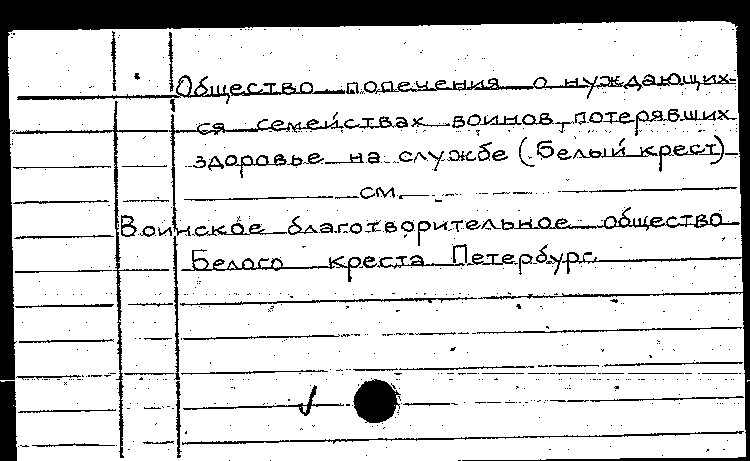 Общество попечения о нуждающих-
ся семействах воинов, потерявших
здоровье на службе (Белый крест)
см.
Воинское благотворительное общество
Белого креста. Петербург.